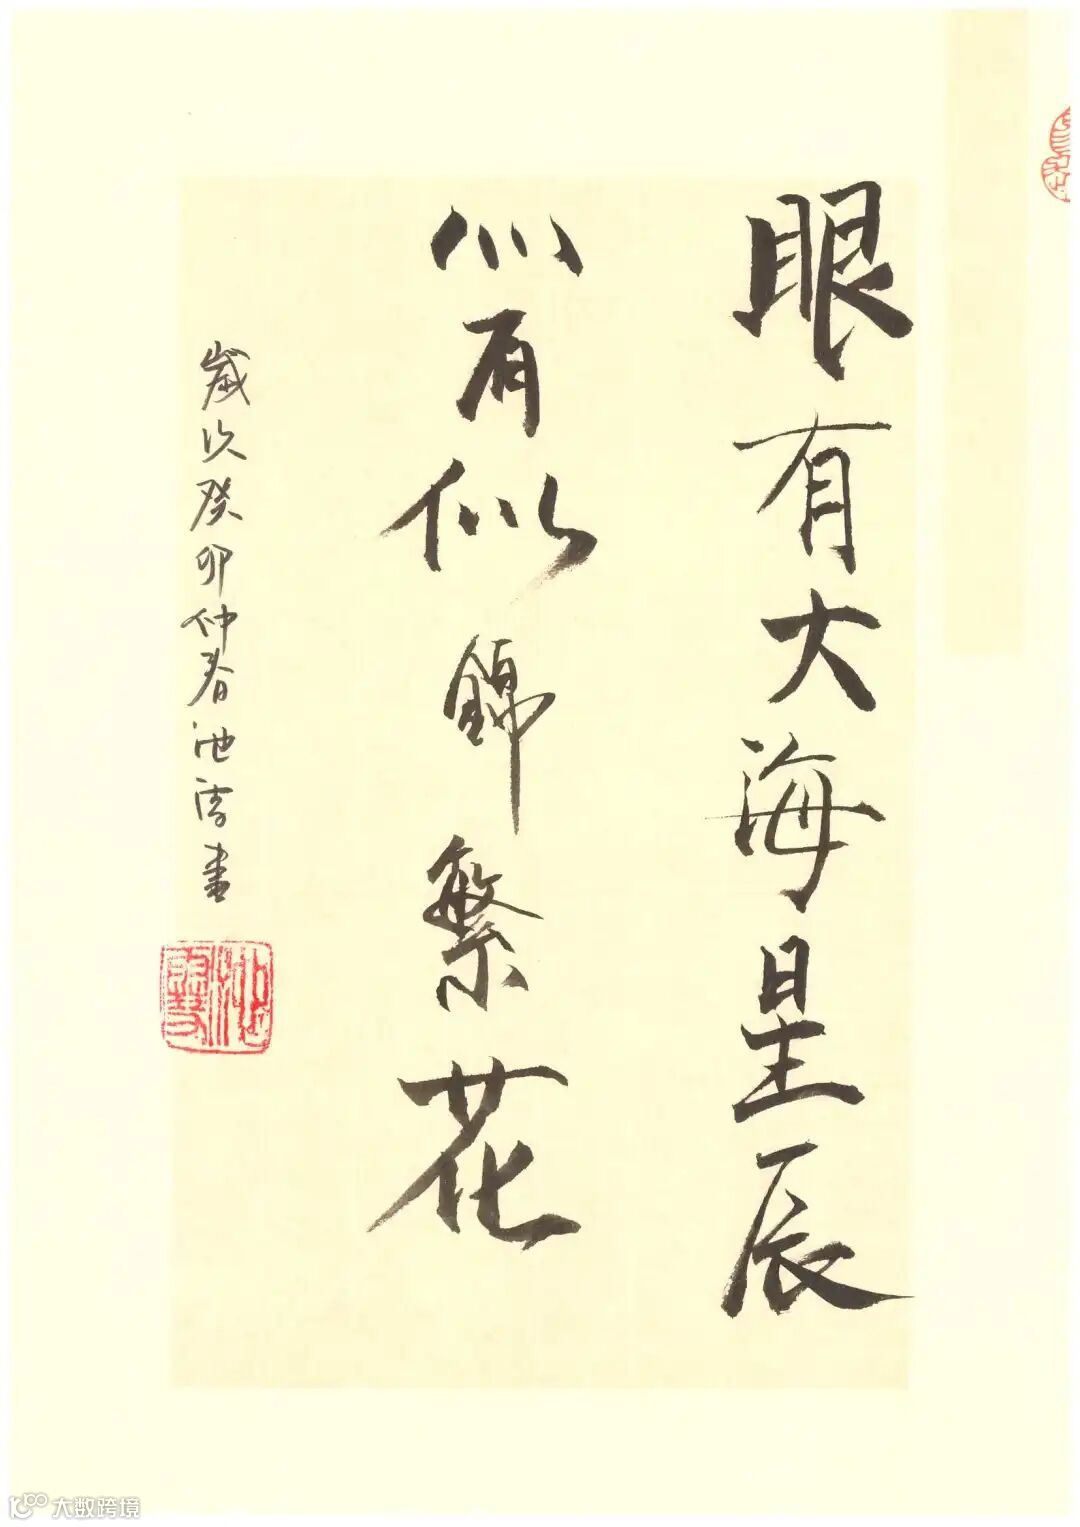 眼有大海星辰
心有似錦繁花
歲次癸卯仲春池
書
大数跨境